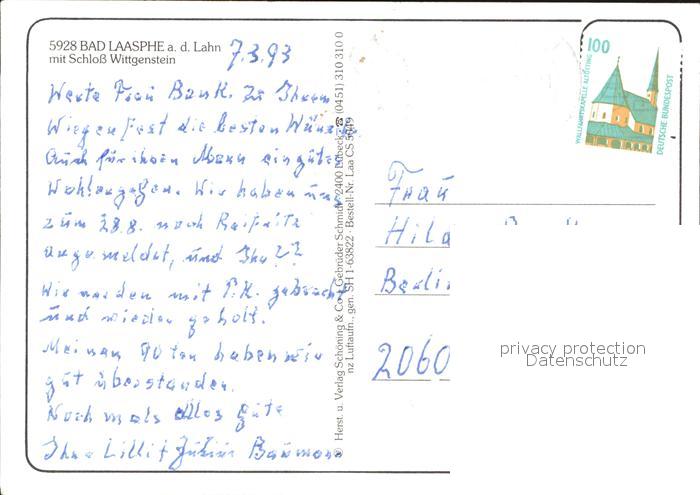 5928 BAD LAASPHE a. d. Lahn
mit Schloß Wittgenstein
7.3.93
Werte Frau Bank. Zu Ihrem
Wiegenfest die besten Wünsche
Auch für ihren Mann ein gutes
Wohlergehen. Wir haben uns
zum 28.8. nach
angemeldet, und Sie??
Wir werden mit P.K. gebracht
und wieder geholt.
Meinen 90 ten haben wir
gut überstanden.
Nochmals Alles Gute
Ihre Lilli + Julius Baumann
Herst. u. Verlag Schöning & Co + Gebrüder Schmidt · 2400 Lübeck ☎ (0451) 310 310 0
nz Luftaufn., gen. SH 1-63822 · Bestell-Nr. Laa CS 5049
100
WALLFAHRTSKAPELLE ALTÖTTING
DEUTSCHE BUNDESPOST
Frau
Hild
Berlin
2060
privacy protection
Datenschutz